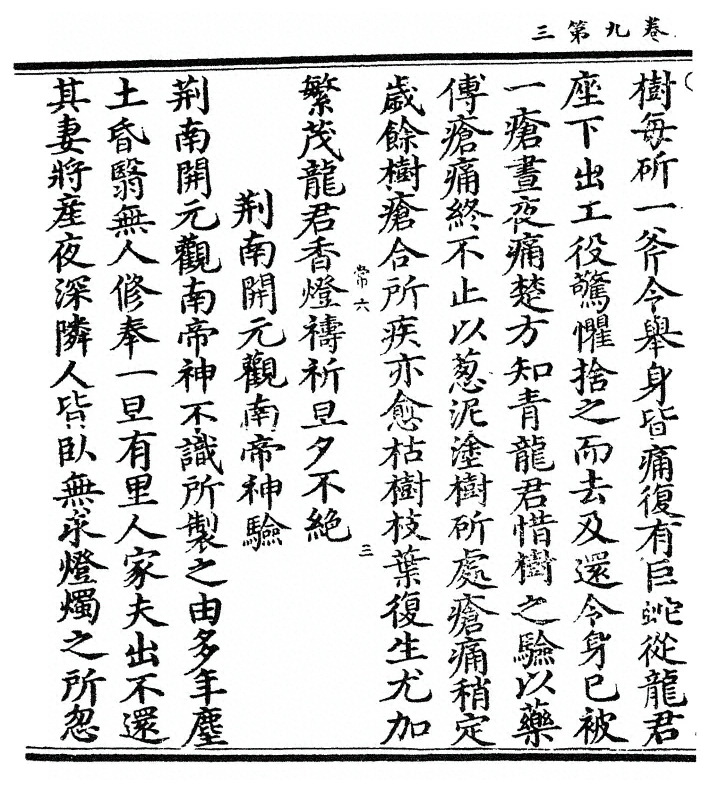 卷九第三
樹每斫一斧令舉身皆痛復有巨蛇從龍君
座下出工役驚懼捨之而去及還令身已被
一瘡晝夜痛楚方知青龍君惜樹之驗以藥
傅瘡痛終不止以葱泥塗樹斫處瘡痛稍定
歲餘樹瘡合所疾亦愈枯樹枝葉復生尤加
常六
三
繁茂龍君香燈禱祈旦夕不絶
荆南開元觀南帝神驗
荆南開元觀南帝神不識所製之由多年塵
土昏翳無人修奉一旦有里人家夫出不還
其妻將産夜深隣人皆臥無求燈燭之所忽